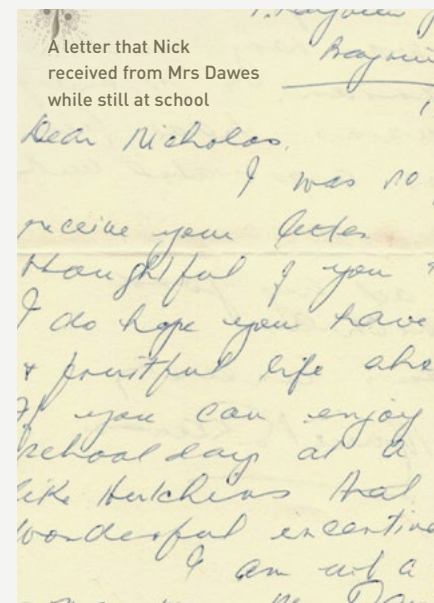 A letter that Nick
received from Mrs Dawes
while still at school
Dear Nicholas,
I was no
receive your letter
thoughtful of you
I do hope you have
& fruitful life ahe
If you can enjoy
schooldays at a
like Hutchins that
wonderful incentive
I am not a